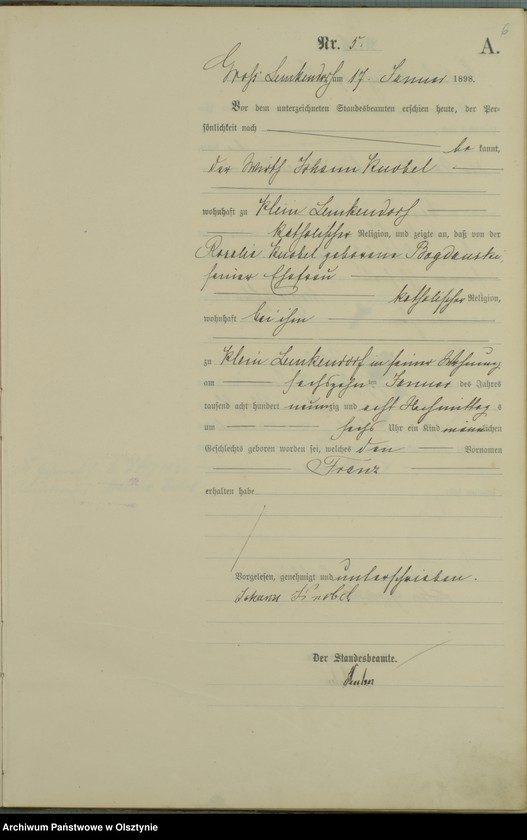 6
Nr. 5.
A.
Groß Lemkendorf am 17. Januar 1898.
Vor dem unterzeichneten Standesbeamten erschien heute, der Per-
sönlichkeit nach
be kannt,
der Wirth Johann Knobel
wohnhaft zu Klein Lemkendorf
katholischer Religion, und zeigte an, daß von der
Rosalie Knobel geborene Bogdanski,
seiner Ehefrau
katholischer Religion,
wohnhaft bei ihm
zu Klein Lemkendorf in seiner Wohnung
am sechszehnten Januar des Jahres
tausend acht hundert neunzig und acht Nachmittags
um sechs Uhr ein Kind männlichen
Geschlechts geboren worden sei, welches den Vornamen
Franz
erhalten habe
Vorgelesen, genehmigt und unterschrieben.
Johann Knobel
Der Standesbeamte.
Archiwum Państwowe w Olsztynie